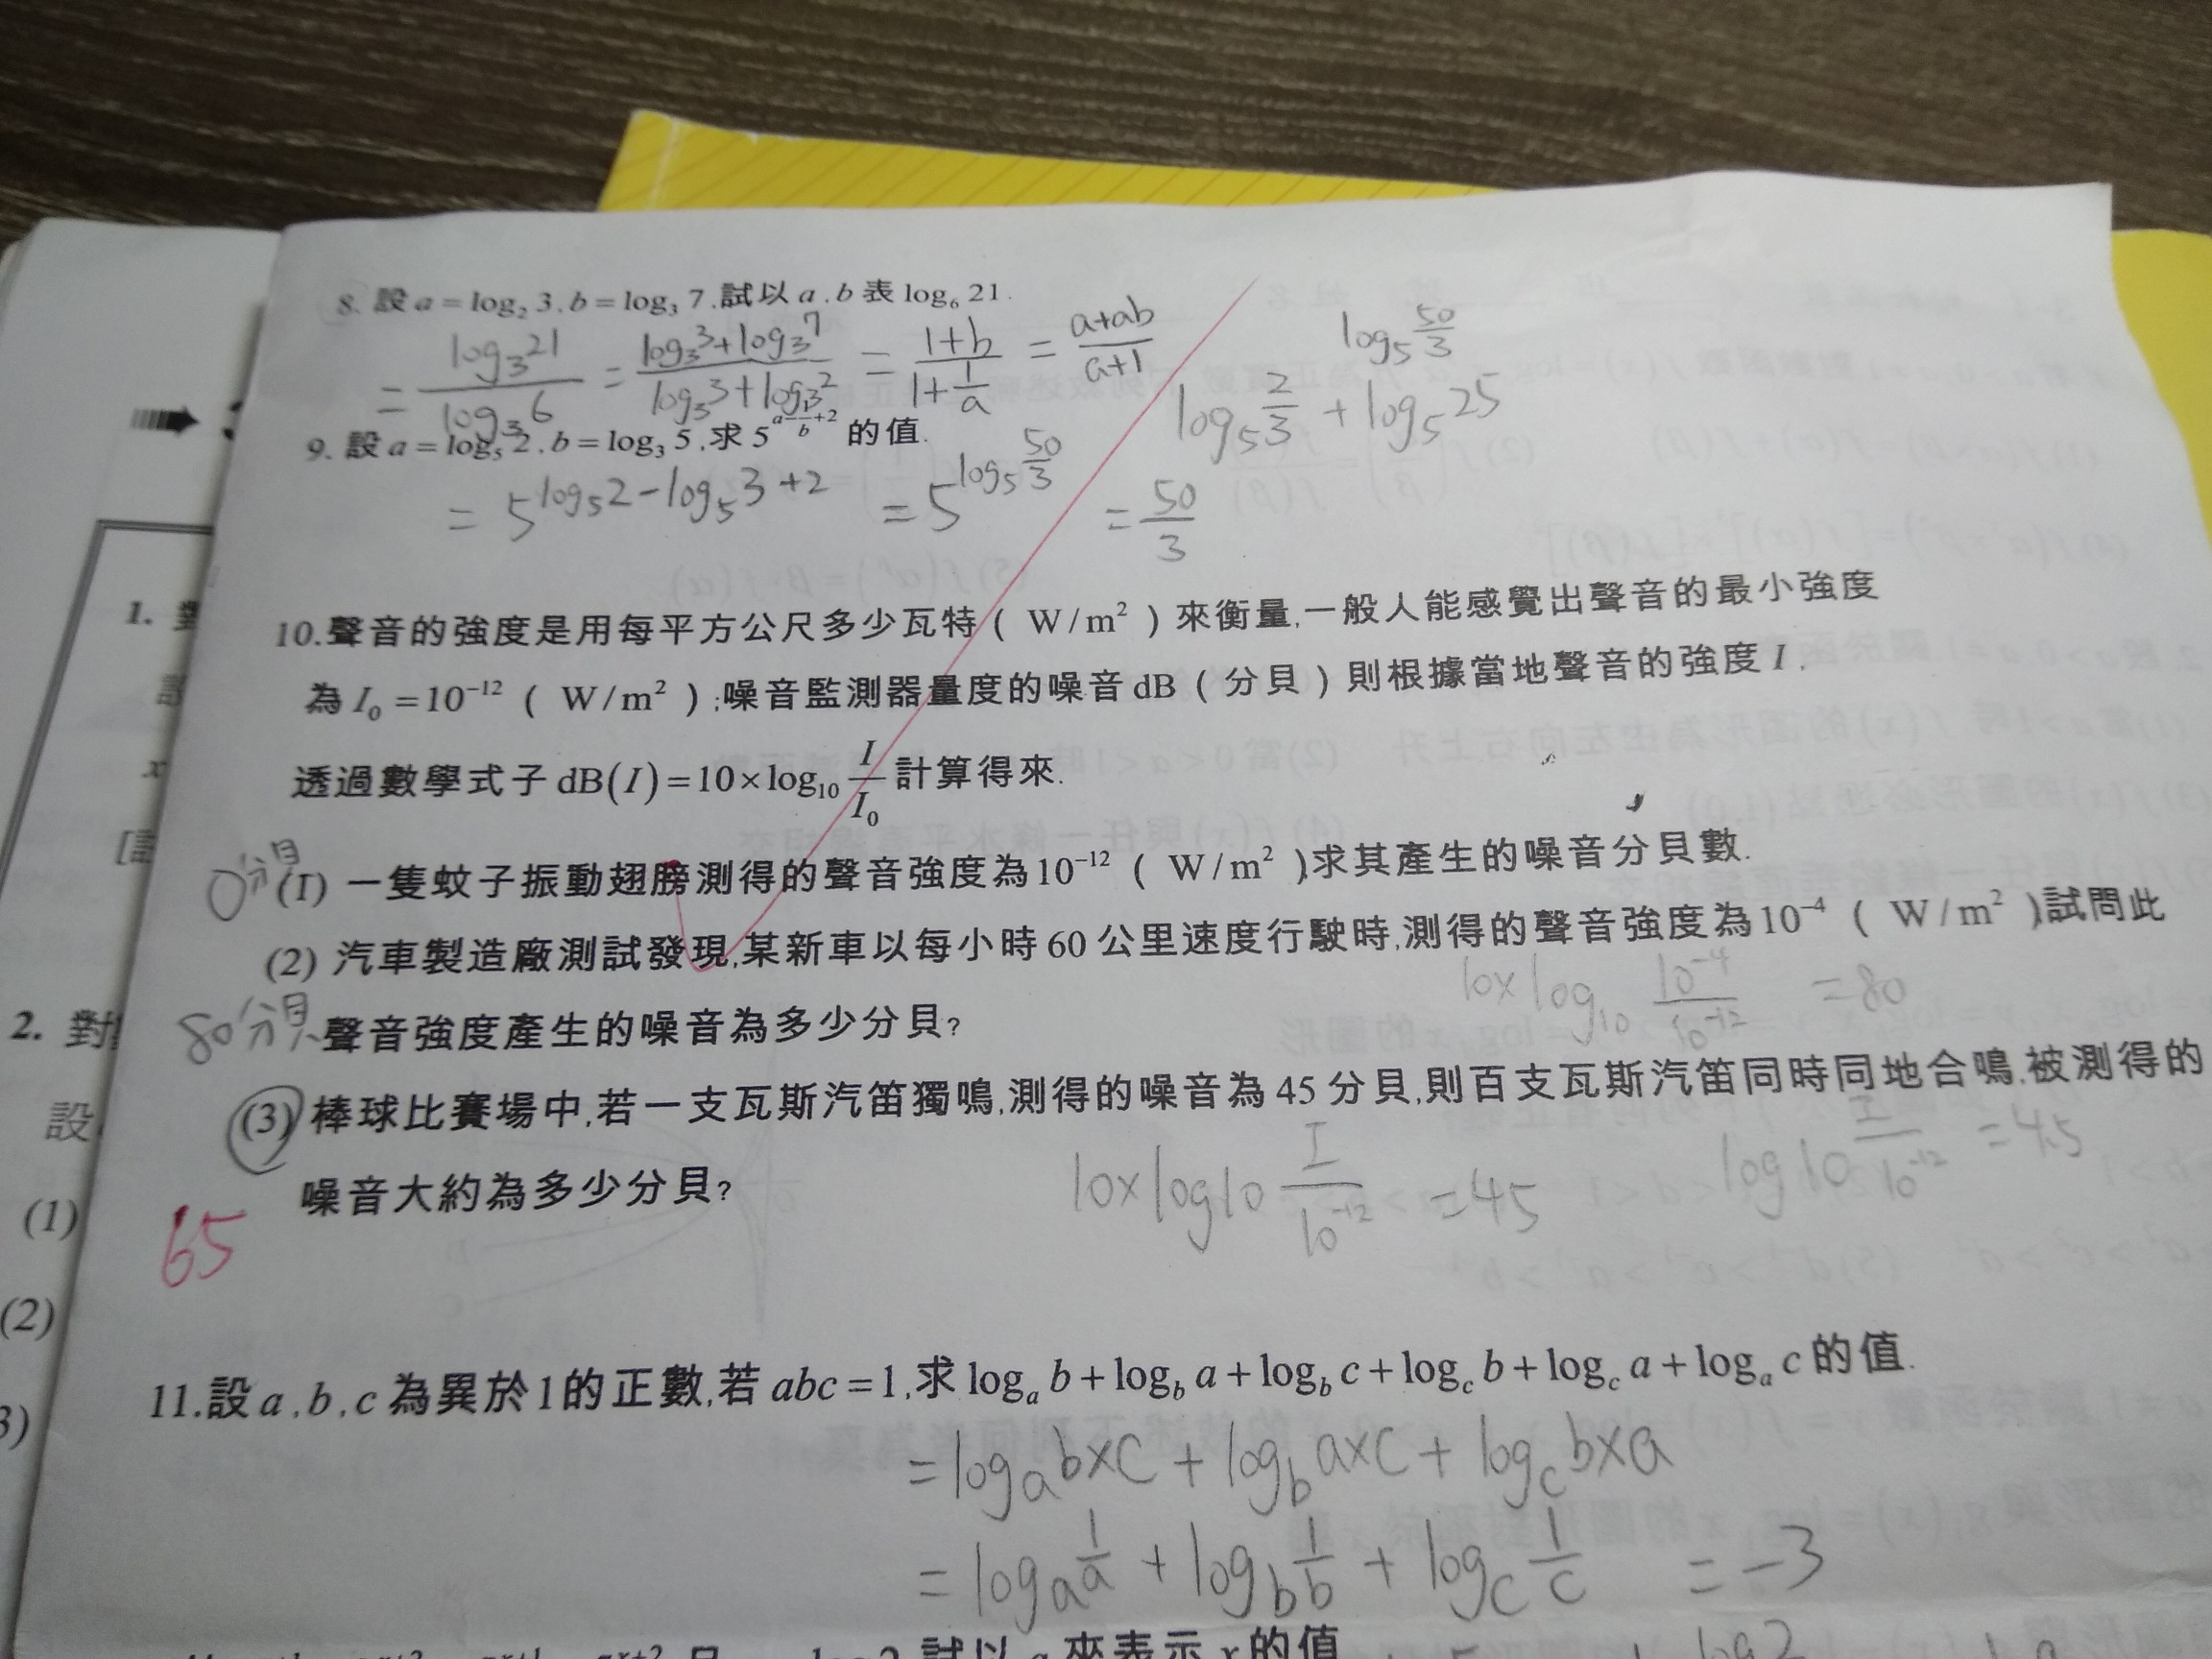 8. 設 a = log₂ 3, b = log₃ 7, 試以 a, b 表 log₆ 21.
= log₃21 / log₃6 = (log₃3 + log₃7) / (log₃3 + log₃2) = (1+b) / (1+1/a) = (a+ab) / (a+1)
log₅ 50/3
log₅ 2/3 + log₅ 25
9. 設 a = log₅ 2, b = log₃ 5, 求 5^(a - 1/b + 2) 的值.
= 5^(log₅2 - log₅3 + 2) = 5^(log₅ 50/3) = 50/3
10. 聲音的強度是用每平方公尺多少瓦特 ( W/m² ) 來衡量, 一般人能感覺出聲音的最小強度
為 I₀ = 10⁻¹² ( W/m² ) ; 噪音監測器量度的噪音 dB ( 分貝 ) 則根據當地聲音的強度 I,
透過數學式子 dB(I) = 10 × log₁₀ I/I₀ 計算得來.
0分貝 (1) 一隻蚊子振動翅膀測得的聲音強度為 10⁻¹² ( W/m² ) 求其產生的噪音分貝數.
(2) 汽車製造廠測試發現, 某新車以每小時 60 公里速度行駛時, 測得的聲音強度為 10⁻⁴ ( W/m² ) 試問此
80分貝 聲音強度產生的噪音為多少分貝?
10×log₁₀ 10⁻⁴/10⁻¹² = 80
(3) 棒球比賽場中, 若一支瓦斯汽笛獨鳴, 測得的噪音為 45 分貝, 則百支瓦斯汽笛同時同地合鳴, 被測得的
噪音大約為多少分貝?
10×log10 I/10⁻¹² = 45
log10 I/10⁻¹² = 4.5
65
11. 設 a, b, c 為異於 1 的正數, 若 abc = 1, 求 logₐ b + log_b a + log_b c + log_c b + log_c a + logₐ c 的值.
= logₐ b×c + log_b a×c + log_c b×a
= logₐ 1/a + log_b 1/b + log_c 1/c = -3
試以 a 來表示 x 的值
1.
2. 對
設
(1)
(2)
3)